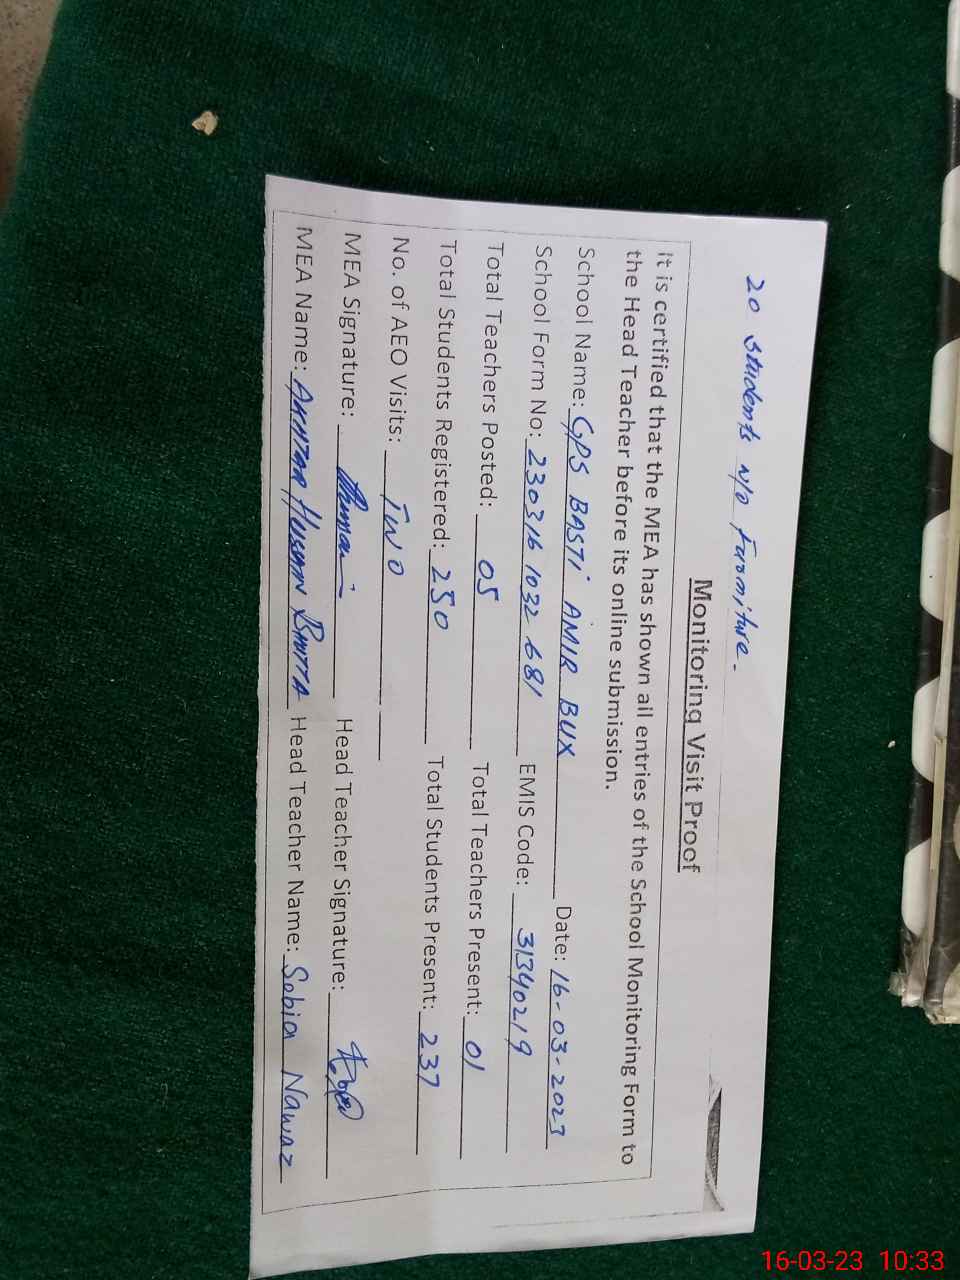 20 students w/o Furniture.
Monitoring Visit Proof
It is certified that the MEA has shown all entries of the School Monitoring Form to
the Head Teacher before its online submission.
School Name: GPS BASTI AMIR BUX Date: 16-03-2023
School Form No: 230316 1032 681 EMIS Code: 31340219
Total Teachers Posted: 05 Total Teachers Present: 01
Total Students Registered: 250 Total Students Present: 237
No. of AEO Visits: TWO
MEA Signature: Head Teacher Signature:
MEA Name: AKHTAR HUSSAIN BHUTTA Head Teacher Name: Sobia Nawaz
16-03-23 10:33